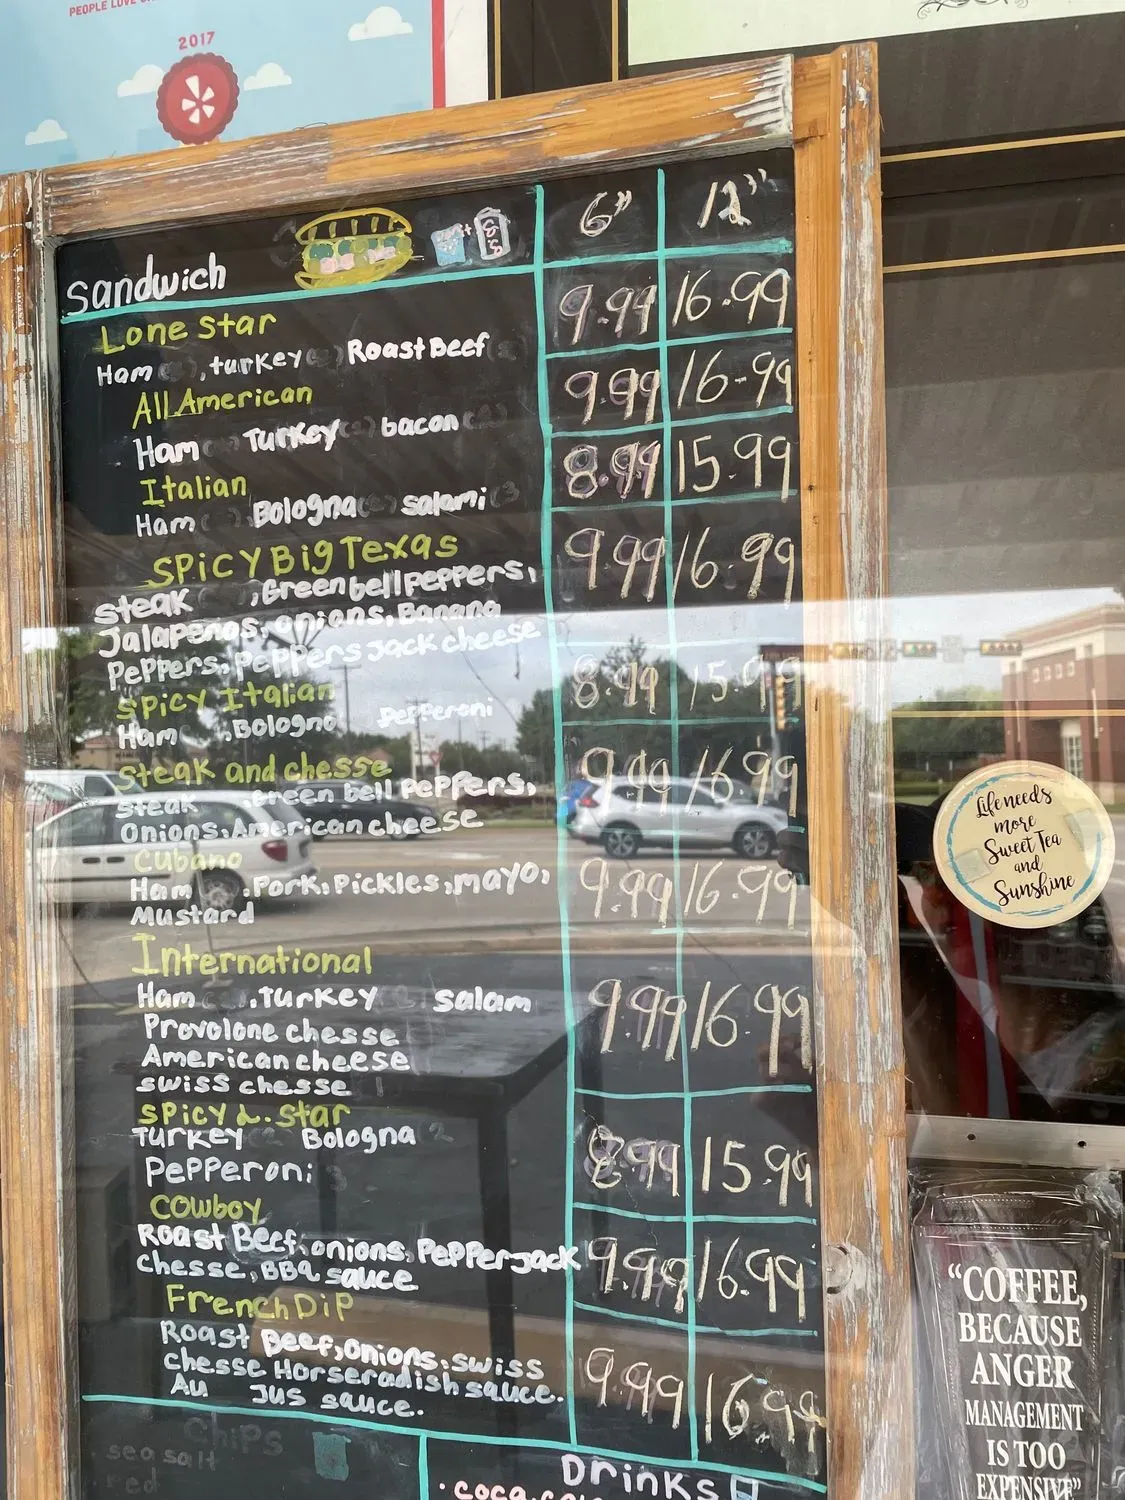 2017
6" 12"
Sandwich
Lone Star 9.99 16.99
Ham , turkey Roast Beef
All American 9.99 16-99
Ham Turkey bacon
Italian 8.99 15.99
Ham Bologna salami
Spicy Big Texas 9.99 16.99
steak , Green bell Peppers,
Jalapenos, onions, Banana
Peppers, Peppers Jack cheese
Spicy Italian 8.99 15.99
Ham , Bologna Pepperoni
Steak and chesse 9.99 16.99
steak . Green bell Peppers,
onions, American cheese
Cubano 9.99 16.99
Ham . Pork, Pickles, mayo,
Mustard
International 9.99 16.99
Ham . Turkey salam
Provolone chesse
American cheese
swiss chesse
Spicy L. Star 8.99 15.99
Turkey 2 Bologna 2
Pepperoni
Cowboy 9.99 16.99
Roast Beef, onions, Pepper jack
chesse, BBQ sauce
French Dip 9.99 16.99
Roast Beef, onions, swiss
chesse Horseradish sauce.
Au Jus sauce.
Chips
sea salt
Drinks
Life needs
more
Sweet Tea
and
Sunshine
"COFFEE,
BECAUSE
ANGER
MANAGEMENT
IS TOO
EXPENSIVE"